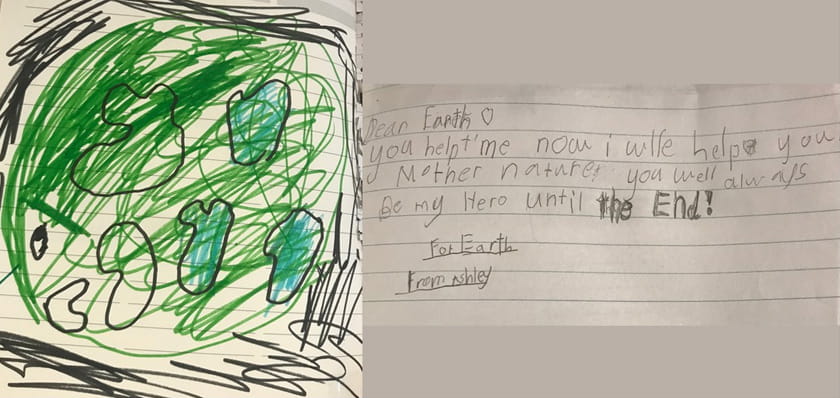 Dear Earth ♡
you help't'me now i wille help you
Mother nature, you well always
Be my Hero until the End!
For Earth
From Ashley